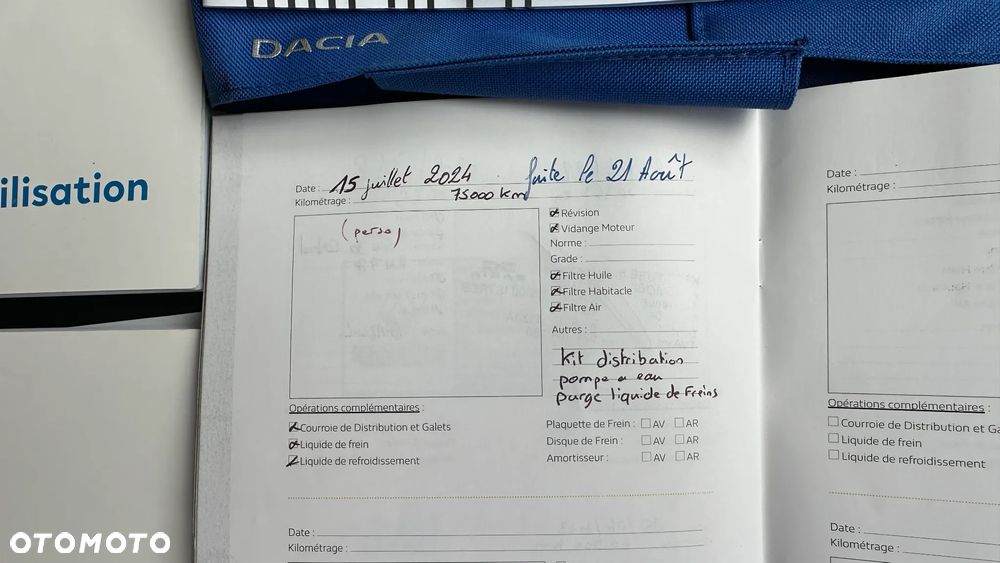 DACIA
ilisation
Date : 15 juillet 2024 . Suite le 21 Août
Kilométrage : 75000 km
(perso)
Révision
Vidange Moteur
Norme :
Grade :
Filtre Huile
Filtre Habitacle
Filtre Air
Autres :
Kit distribution
pompe a eau
purge liquide de Freins
Opérations complémentaires :
Courroie de Distribution et Galets
Liquide de frein
Liquide de refroidissement
Plaquette de Frein : AV AR
Disque de Frein : AV AR
Amortisseur : AV AR
Date :
Kilométrage :
Date :
Kilométrage :
Opérations complémentaires :
Courroie de Distribution et Ga
Liquide de frein
Liquide de refroidissement
Date :
Kilométrage :
OTOMOTO